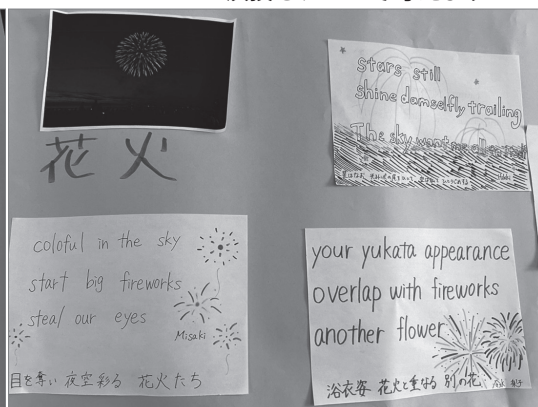 花火
stars still
shine damselfly trailing
The sky
coloful in the sky
start big fireworks
steal our eyes
Misaki
目を奪い 夜空彩る 花火たち
your yukata appearance
overlap with fireworks
another flower
浴衣姿 花火と重なる 別の花